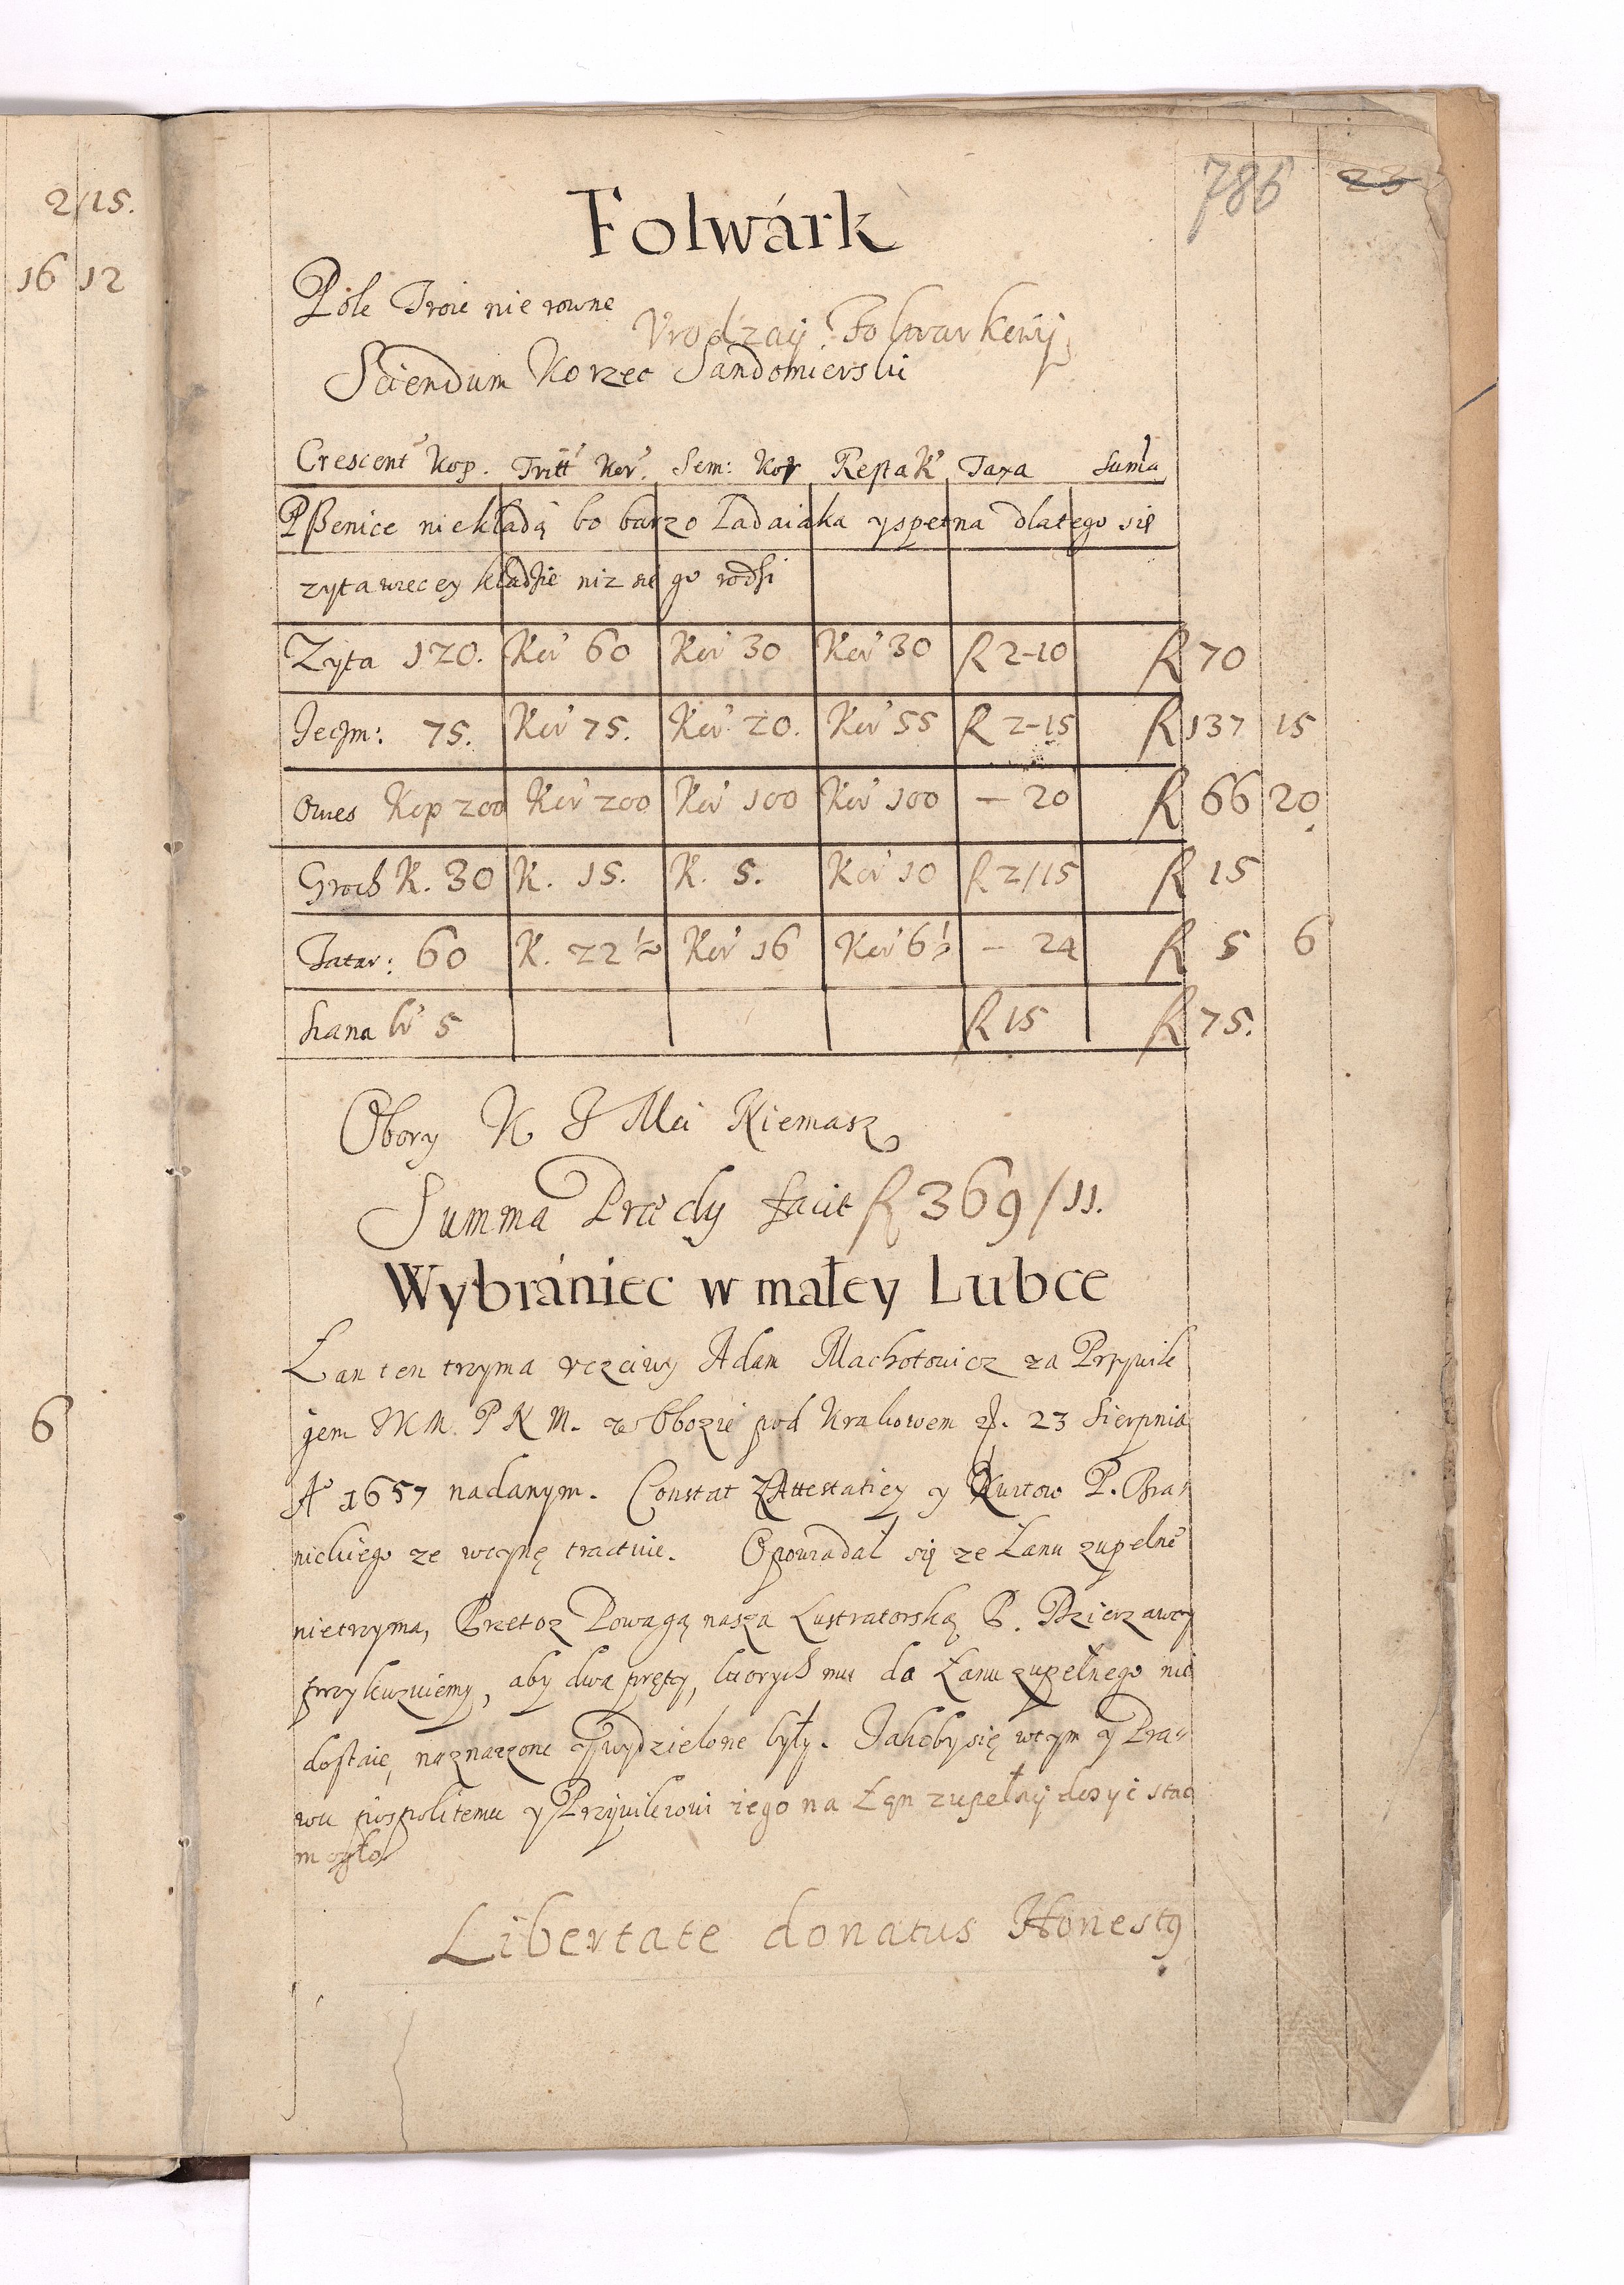 2/15.
16 12
6
786 23
Folwárk
Pole Troie nie rowne
Vrodzay Folwarkowy
Sciendum Korzec Sandomierski
Crescent Kop. Tritt Kor. Sem: Kor Resta K Taxa Suma
Pszenice niekładą bo barzo ladaiaka y spetna dlatego się
zyta wiecey kładzie niz się go rodzi
Zyta 120. Kor 60 Kor 30 Kor 30 fl 2-10 fl 70
Jeczm: 75. Kor 75. Kor 20. Kor 55 fl 2-15 fl 137 15
Owes Kop 200 Kor 200 Kor 100 Kor 100 — 20 fl 66 20
Groch K. 30 K. 15. K. 5. Kor 10 fl 2/15 fl 15
Tatar: 60 K. 22½ Kor 16 Kor 6½ — 24 fl 5 6
Siana 5 fl 15 fl 75.
Obory K J Mci Niemasz
Summa facit fl 369/11.
Wybrániec w małey Lubce
Łan ten trzyma vczciwy Adam Machotowicz za Przywile
jem P K M. w Obozie pod Krakowem 23 Sierpnia
Aº 1657 nadanym. Constat z Attestatiey y Kwitow P. Bra
nickiego ze woynę tractuie. Opowiadał się ze Łanu zupełne
nietrzyma, Przetoz Powagą naszą Lustratorską P. Dzierzawcy
przykazuiemy, aby dwa pręty, ktorych mu do Łanu zupełnego nie
dostaie, naznaczone y wydzielone były. Jakoby się wtym y Pra
wu pospolitemu y Przywileiowi iego na Łan zupełny dosyć stac
mogło
Libertate donatus Honesty